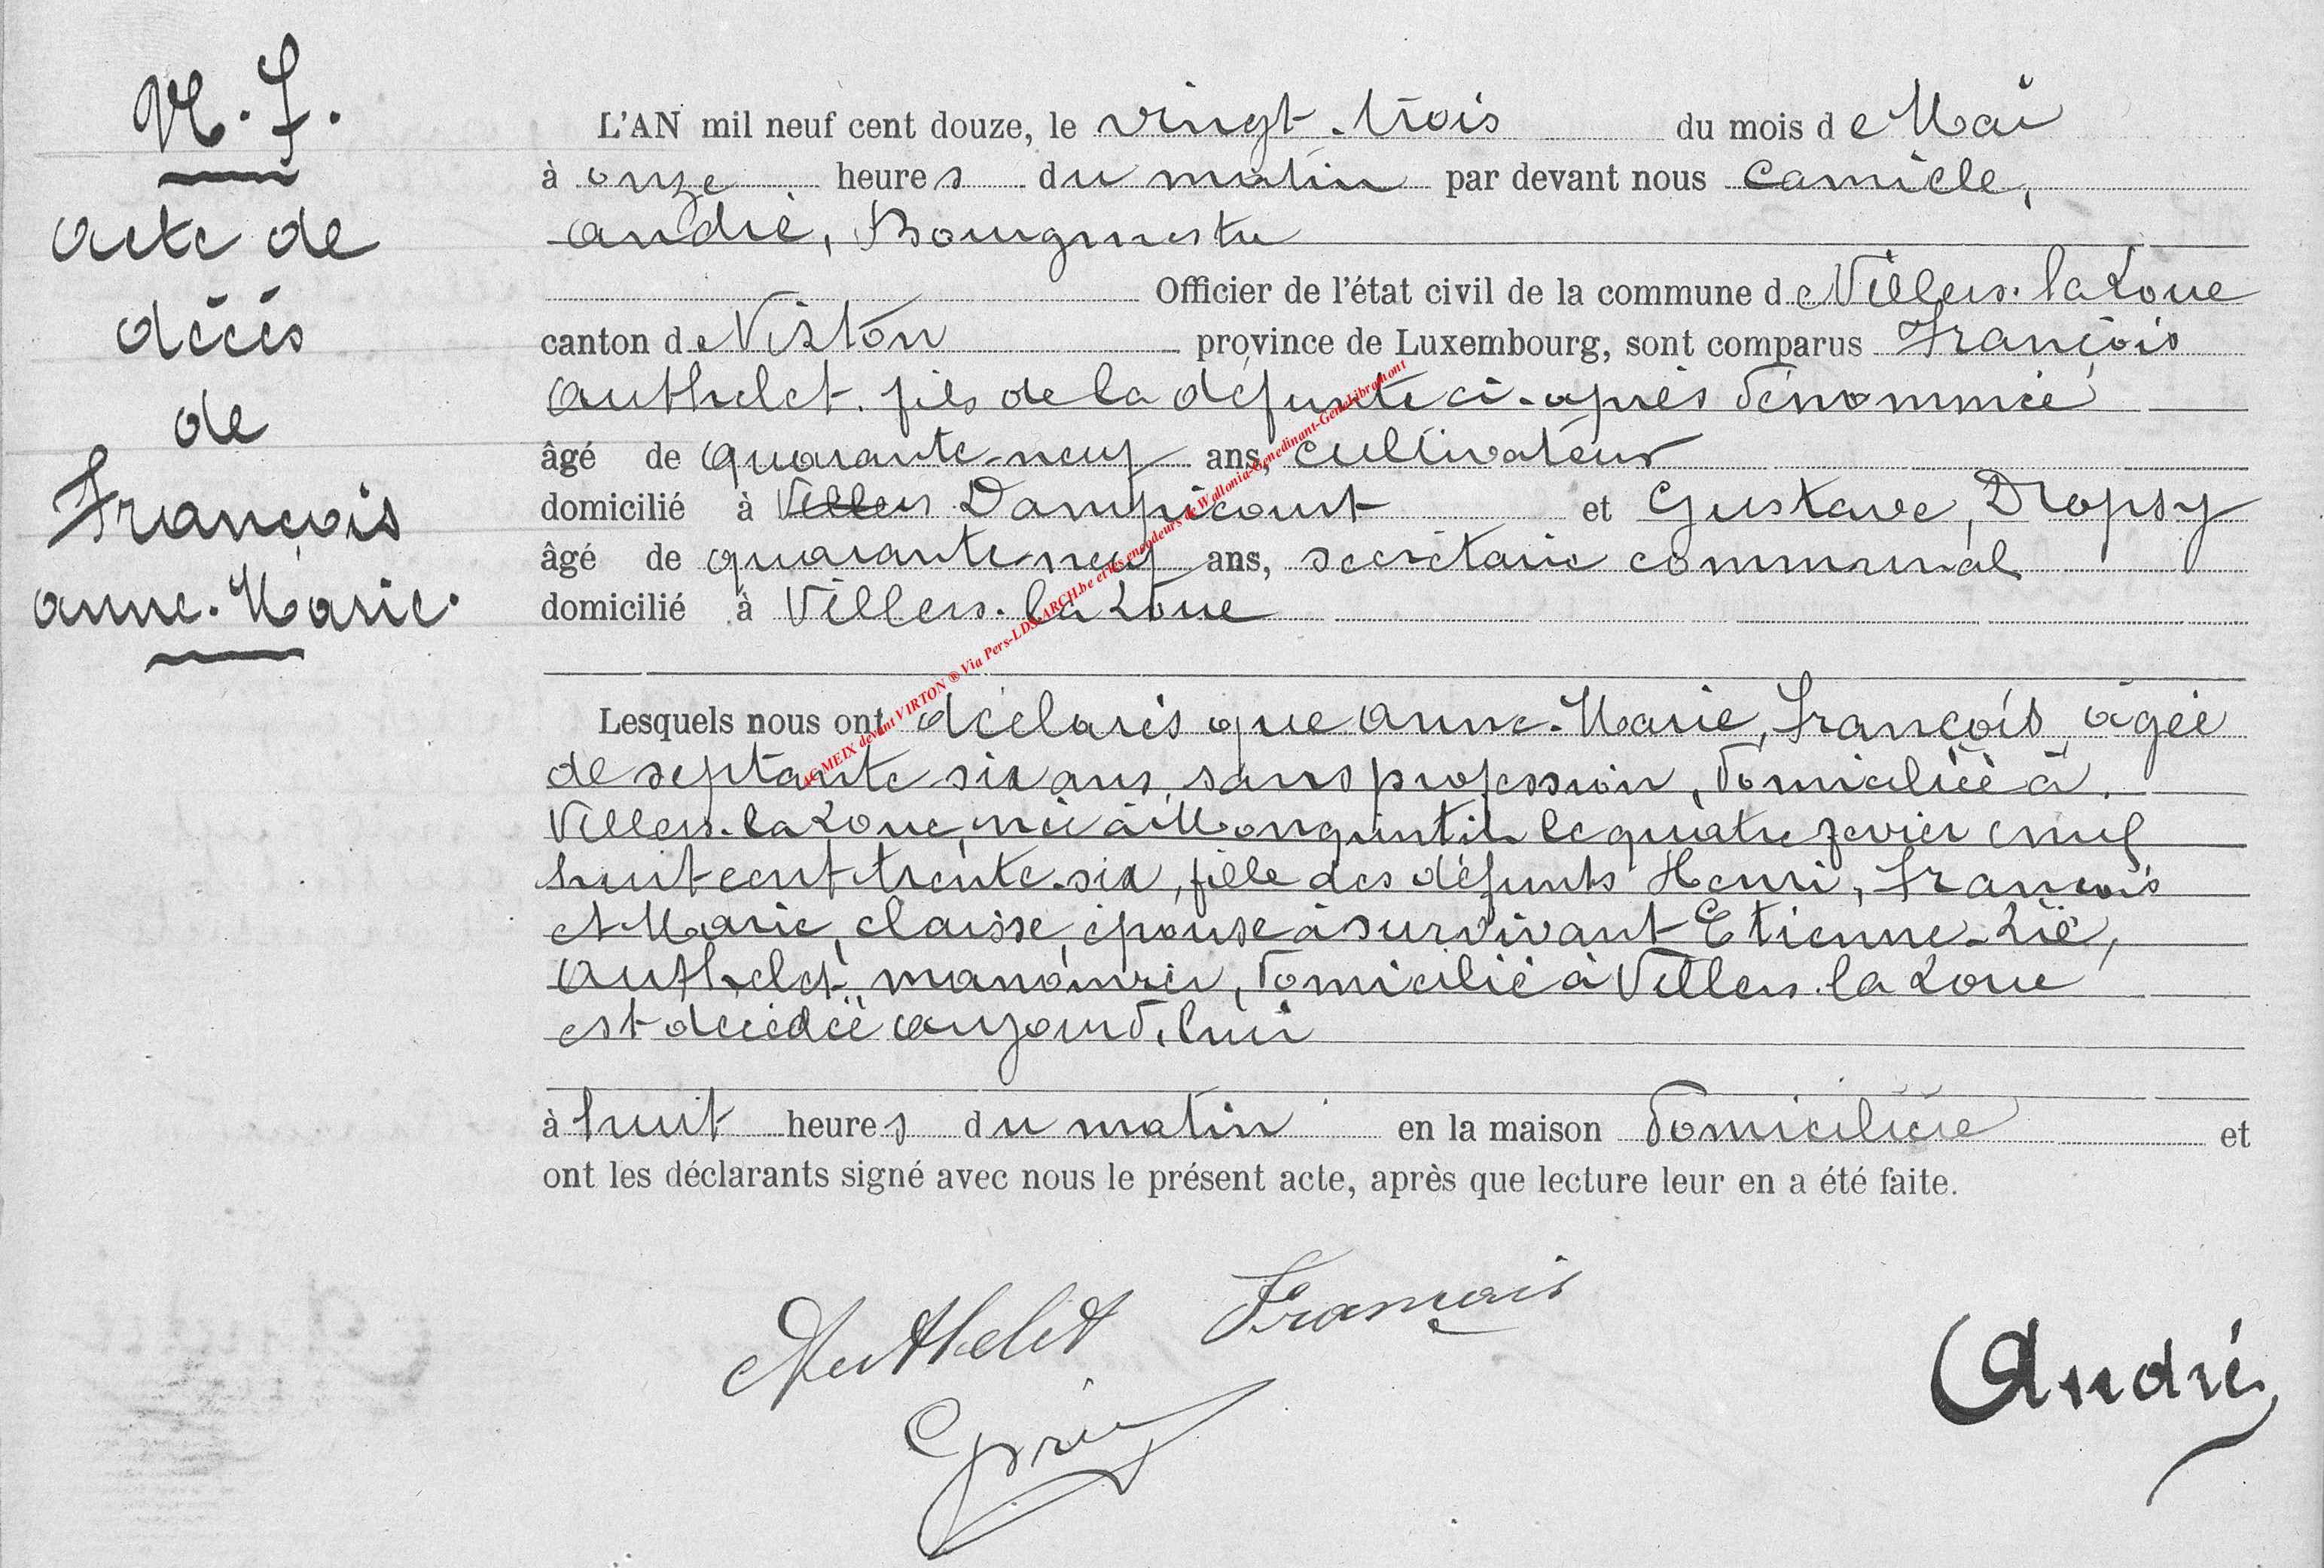 N. 7.
Acte de
décès
de
François
Anne-Marie.
L'AN mil neuf cent douze, le vingt-trois du mois de Mai
à onze heures du matin par devant nous Camille,
André, Bourgmestre
Officier de l'état civil de la commune de Villers-la-Loue
canton de Virton province de Luxembourg, sont comparus François
Authelet fils de la défunte ci-après dénommée
âgé de quarante-neuf ans, cultivateur
domicilié à Villers Dampicourt et Gustave, Dropsy
âgé de quarante-neuf ans, secrétaire communal
domicilié à Villers-la-Loue
Lesquels nous ont déclarés que Anne-Marie, François, âgée
de septante six ans, sans profession, domiciliée à
Villers-la-Loue, née à Monquintin le quatre fevier mil
huit cent trente-six, fille des défunts Henri, François
et Marie, Claisse, épouse à survivant Etienne-Lié,
Authelet, manouvrier, domicilié à Villers-la-Loue
est décédée aujourd'hui
à huit heures du matin en la maison domicilière et
ont les déclarants signé avec nous le présent acte, après que lecture leur en a été faite.
Authelet François
André
AC MEIX devant VIRTON ® Via Pers-LDS-ARCH.be et les encodeurs de Wallonia-Genedinant-GeneLibramont